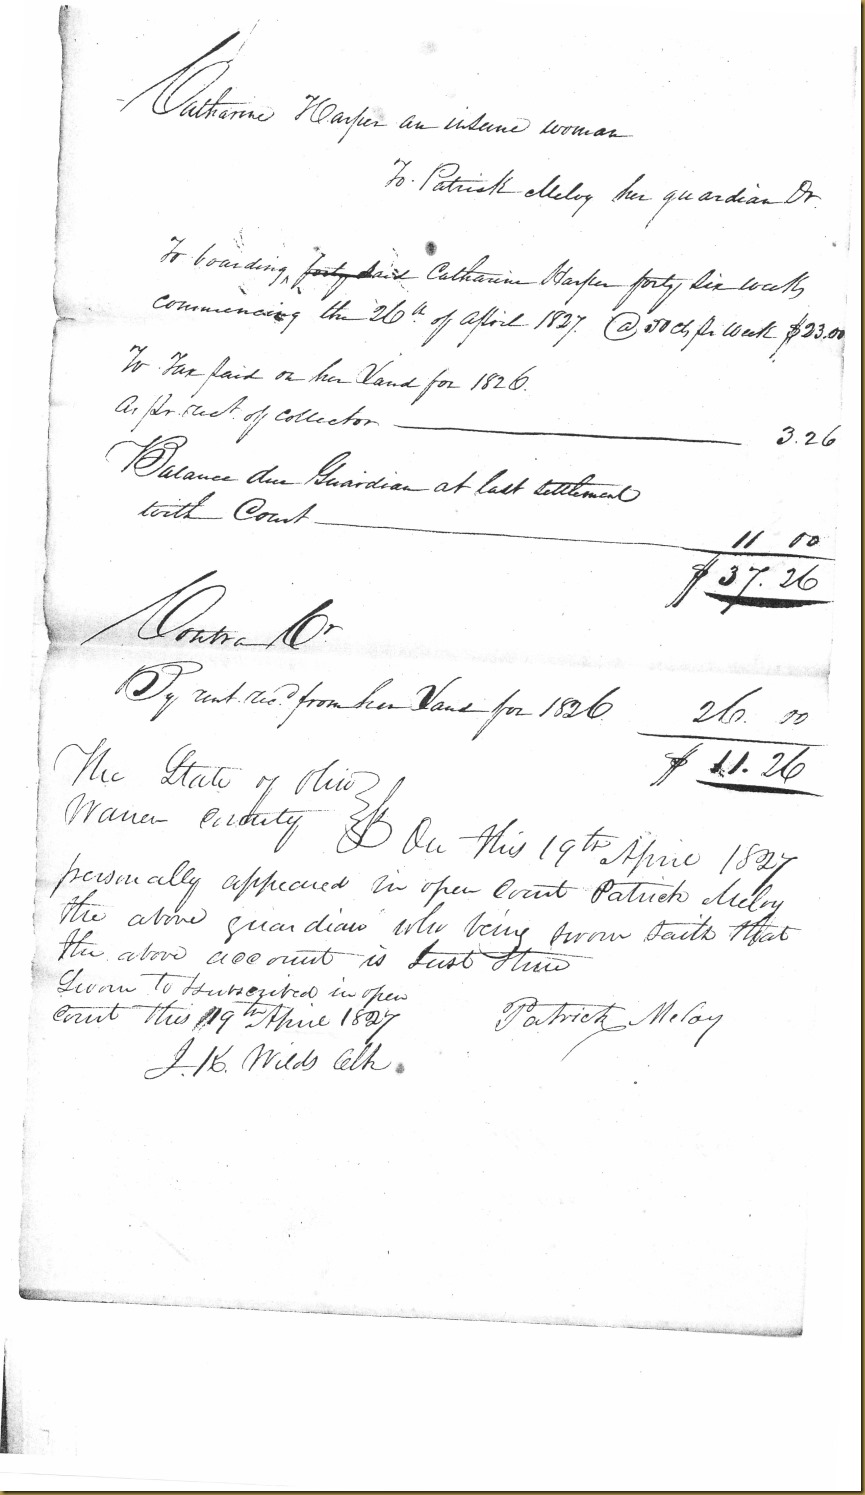 Catharine Harper an insane woman
To Patrick Meloy her guardian Dr.
To boarding, forty said Catharine Harper forty six weeks
commencing the 26th of April 1827. @ 50 cts pr week $23.00
To Tax paid on her Land for 1826.
As pr. rect. of collector 3.26
Balance due Guardian at last settlement
with Court 11 00
$37.26
Contra Cr
By rent recd from her Land for 1826 26.00
$11.26
The State of Ohio
Warren County } SS On this 19th April 1827
personally appeared in open Court Patrick Meloy
the above guardian who being sworn saith that
the above account is Just & true
Sworn to & subscribed in open
Court this 19th April 1827 Patrick Meloy
J. K. Wilds Clk.